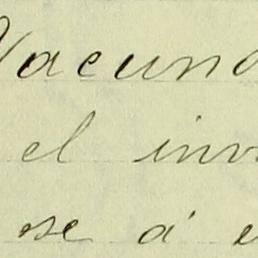 Vacuna
el inv
se á e